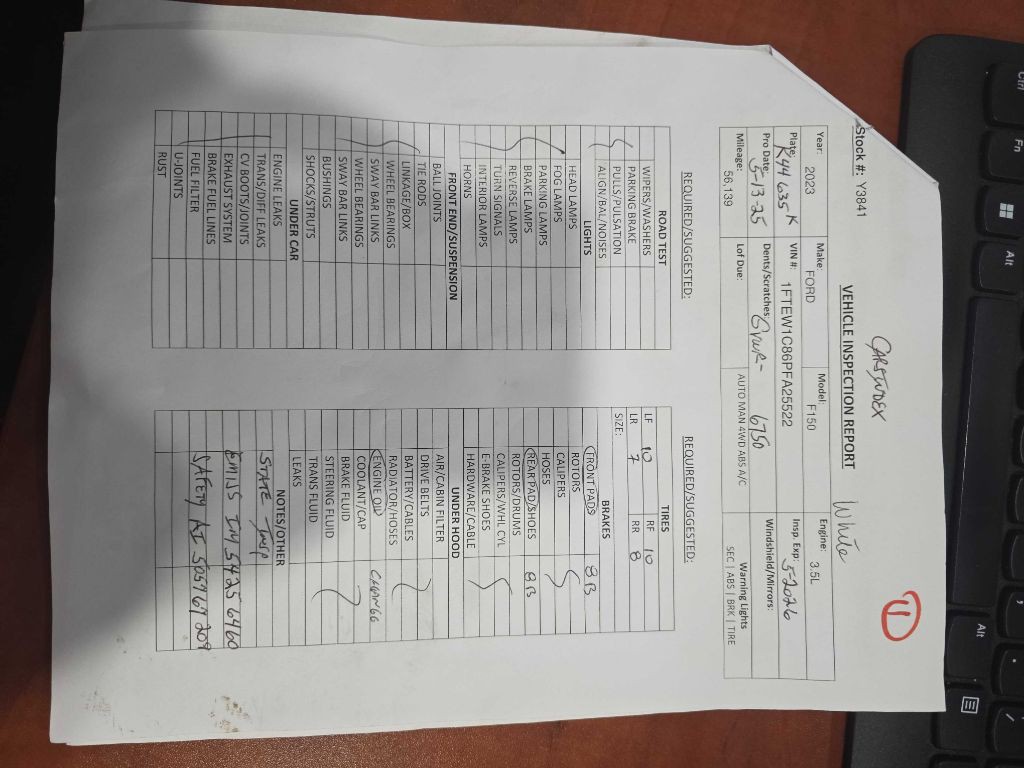 CARSINDEX
White
11
VEHICLE INSPECTION REPORT
Stock #: Y3841
Year: 2023 Make: FORD Model: F150 Engine: 3.5L
Plate: K44635K VIN #: 1FTEW1C86PFA25522 Insp. Exp: 5-2026
Pro Date: 5-13-25 Dents/Scratches: 6750 Windshield/Mirrors:
Mileage: 56,139 Lof Due: AUTO MAN 4WD ABS A/C Warning Lights SEC | ABS | BRK | TIRE
REQUIRED/SUGGESTED:
ROAD TEST
WIPERS/WASHERS
PARKING BRAKE
PULLS/PULSATION
ALIGN/BAL/NOISES
LIGHTS
HEAD LAMPS
FOG LAMPS
PARKING LAMPS
BRAKE LAMPS
REVERSE LAMPS
TURN SIGNALS
INTERIOR LAMPS
HORNS
FRONT END/SUSPENSION
BALL JOINTS
TIE RODS
LINKAGE/BOX
WHEEL BEARINGS
SWAY BAR LINKS
WHEEL BEARINGS
SWAY BAR LINKS
BUSHINGS
SHOCKS/STRUTS
UNDER CAR
ENGINE LEAKS
TRANS/DIFF LEAKS
CV BOOTS/JOINTS
EXHAUST SYSTEM
BRAKE FUEL LINES
FUEL FILTER
U-JOINTS
RUST
REQUIRED/SUGGESTED:
TIRES
LF 10 RF 10
LR 7 RR 8
SIZE:
BRAKES
FRONT PADS 8B
ROTORS
CALIPERS
HOSES
REAR PAD/SHOES 8B
ROTORS/DRUMS
CALIPERS/WHL CYL
E-BRAKE SHOES
HARDWARE/CABLE
UNDER HOOD
AIR/CABIN FILTER
DRIVE BELTS
BATTERY/CABLES
RADIATOR/HOSES
ENGINE OIL CHANGE
COOLANT/CAP
BRAKE FLUID
STEERING FLUID
TRANS FLUID
LEAKS
NOTES/OTHER
STATE INSP
EMIS IM 54256460
SAFETY AI 505969209
Ctrl
Fn
Alt
Alt